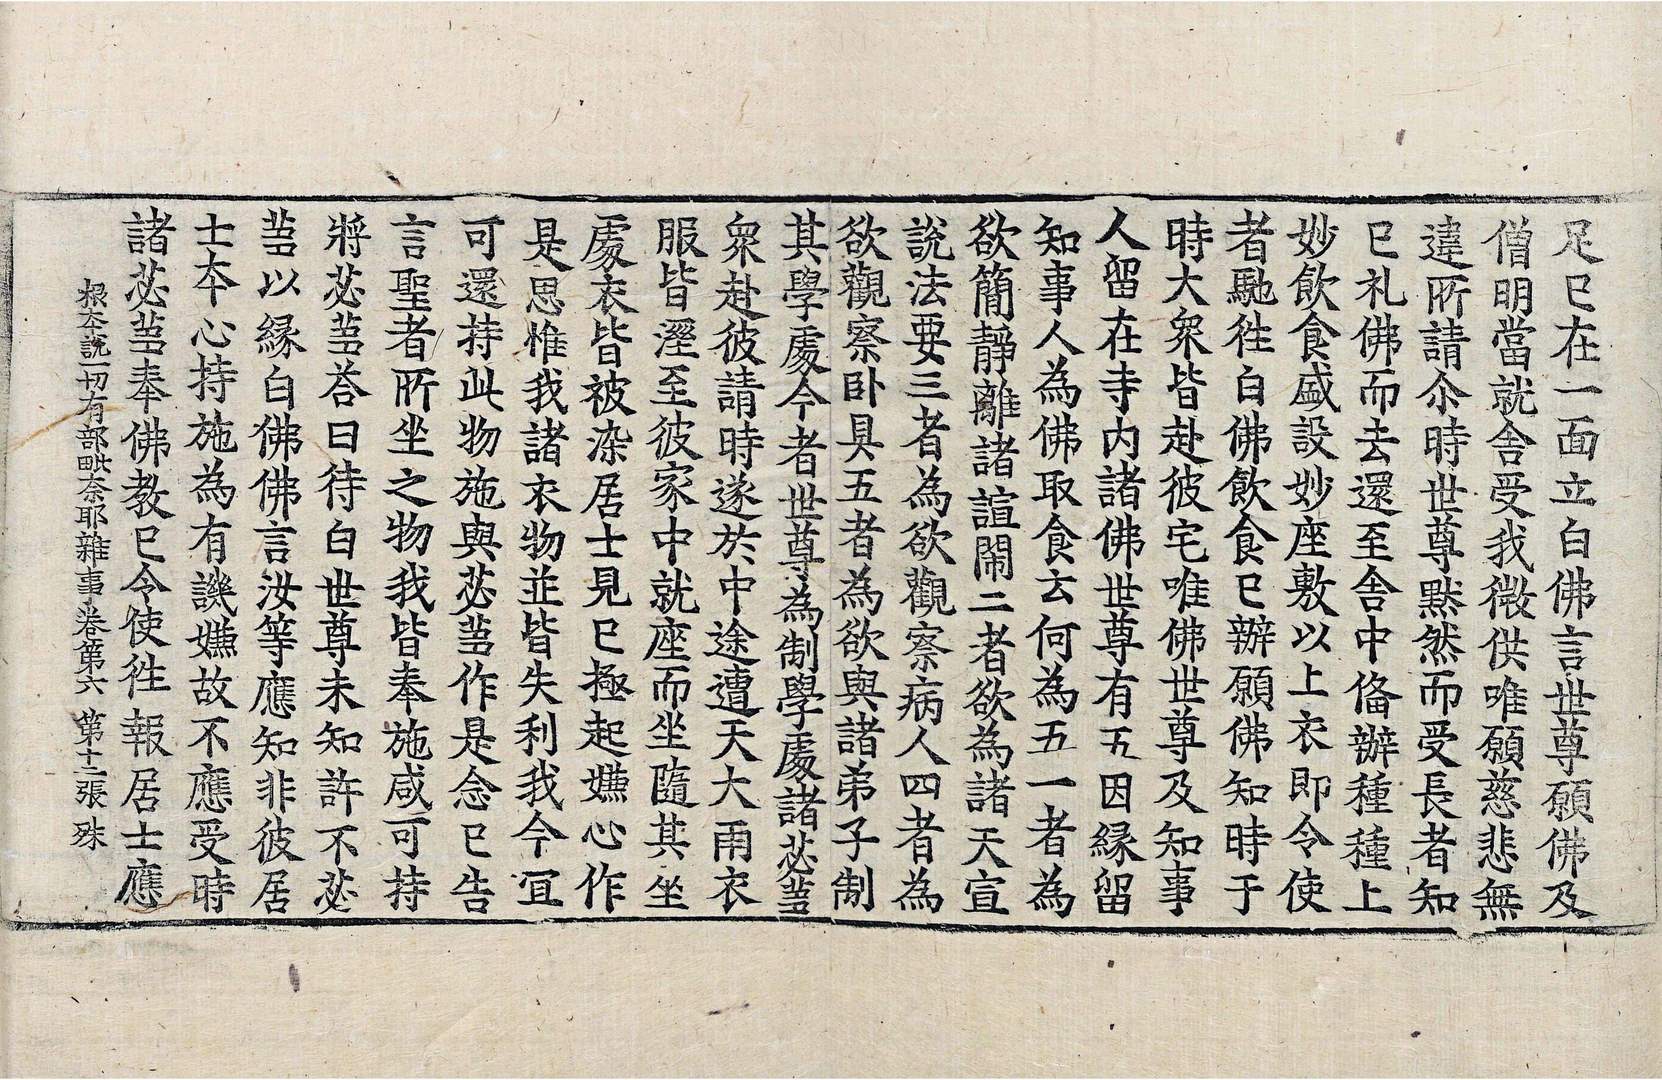 足已在一面立白佛言世尊願佛及
僧明當就舍受我微供唯願慈悲無
違所請尒時世尊黙然而受長者知
已礼佛而去還至舍中俻辦種種上
妙飲食盛設妙座敷以上衣即令使
者馳徃白佛飲食已辦願佛知時于
時大衆皆赴彼宅唯佛世尊及知事
人留在寺内諸佛世尊有五因縁留
知事人為佛取食云何為五一者為
欲簡靜離諸諠閙二者欲為諸天宣
說法要三者為欲觀察病人四者為
欲觀察卧具五者為欲與諸弟子制
其學處今者世尊為制學處諸苾芻
衆赴彼請時遂於中途遭天大雨衣
服皆溼至彼家中就座而坐隨其坐
處衣皆被染居士見已極起嫌心作
是思惟我諸衣物並皆失利我今宜
可還持此物施與苾芻作是念已告
言聖者所坐之物我皆奉施咸可持
將苾芻荅曰待白世尊未知許不苾
芻以縁白佛佛言汝等應知非彼居
士夲心持施為有譏嫌故不應受時
諸苾芻奉佛教已令使徃報居士應
根夲說一切有部毗奈耶雜事卷第六 第十二張 殊